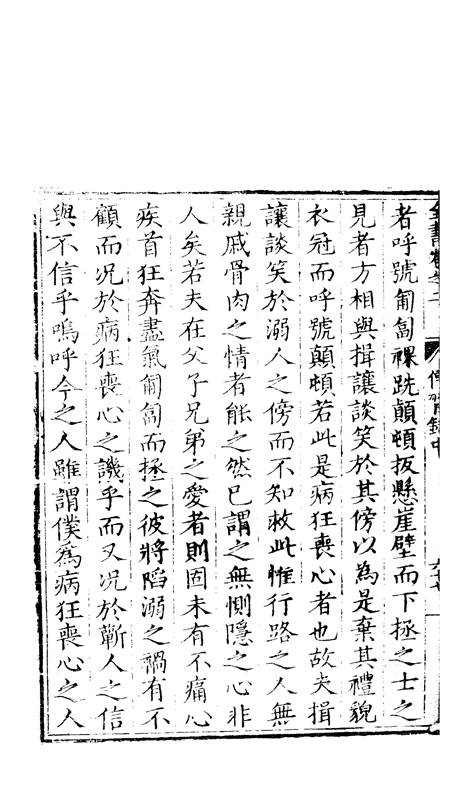 全書卷之二 傳習錄中
者呼號匍匐裸跣顛頓扳懸崖壁而下拯之士之
見者方相與揖讓談笑於其傍以為是棄其禮貌
衣冠而呼號顛頓若此是病狂喪心者也故夫揖
讓談笑於溺人之傍而不知救此惟行路之人無
親戚骨肉之情者能之然已謂之無惻隱之心非
人矣若夫在父子兄弟之愛者則固未有不痛心
疾首狂奔盡氣匍匐而拯之彼將陷溺之禍有不
顧而况於病狂喪心之譏乎而又况於蘄人之信
與不信乎嗚呼今之人雖謂僕為病狂喪心之人